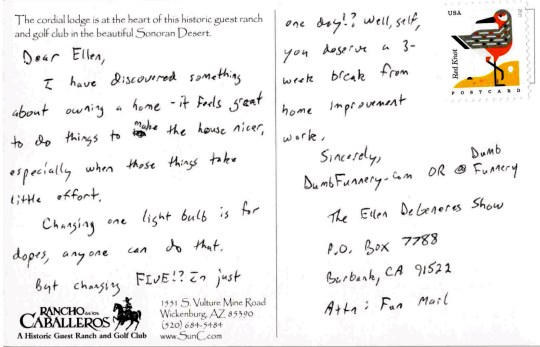 The cordial lodge is at the heart of this historic guest ranch
and golf club in the beautiful Sonoran Desert.
Dear Ellen,
I have discovered something
about owning a home - it feels great
to do things to make the house nicer,
especially when those things take
little effort.
Changing one light bulb is for
dopes, anyone can do that.
But changing FIVE!? In just
RANCHO de los
CABALLEROS
A Historic Guest Ranch and Golf Club
1551 S. Vulture Mine Road
Wickenburg, AZ 85390
(520) 684-5484
www.SunC.com
one day!? Well, self,
you deserve a 3-
week break from
home improvement
work.
Sincerely,
DumbFunnery.com OR @ Dumb
Funnery
The Ellen DeGeneres Show
P.O. Box 7788
Burbank, CA 91522
Attn: Fan Mail
USA
Red Knot
POSTCARD